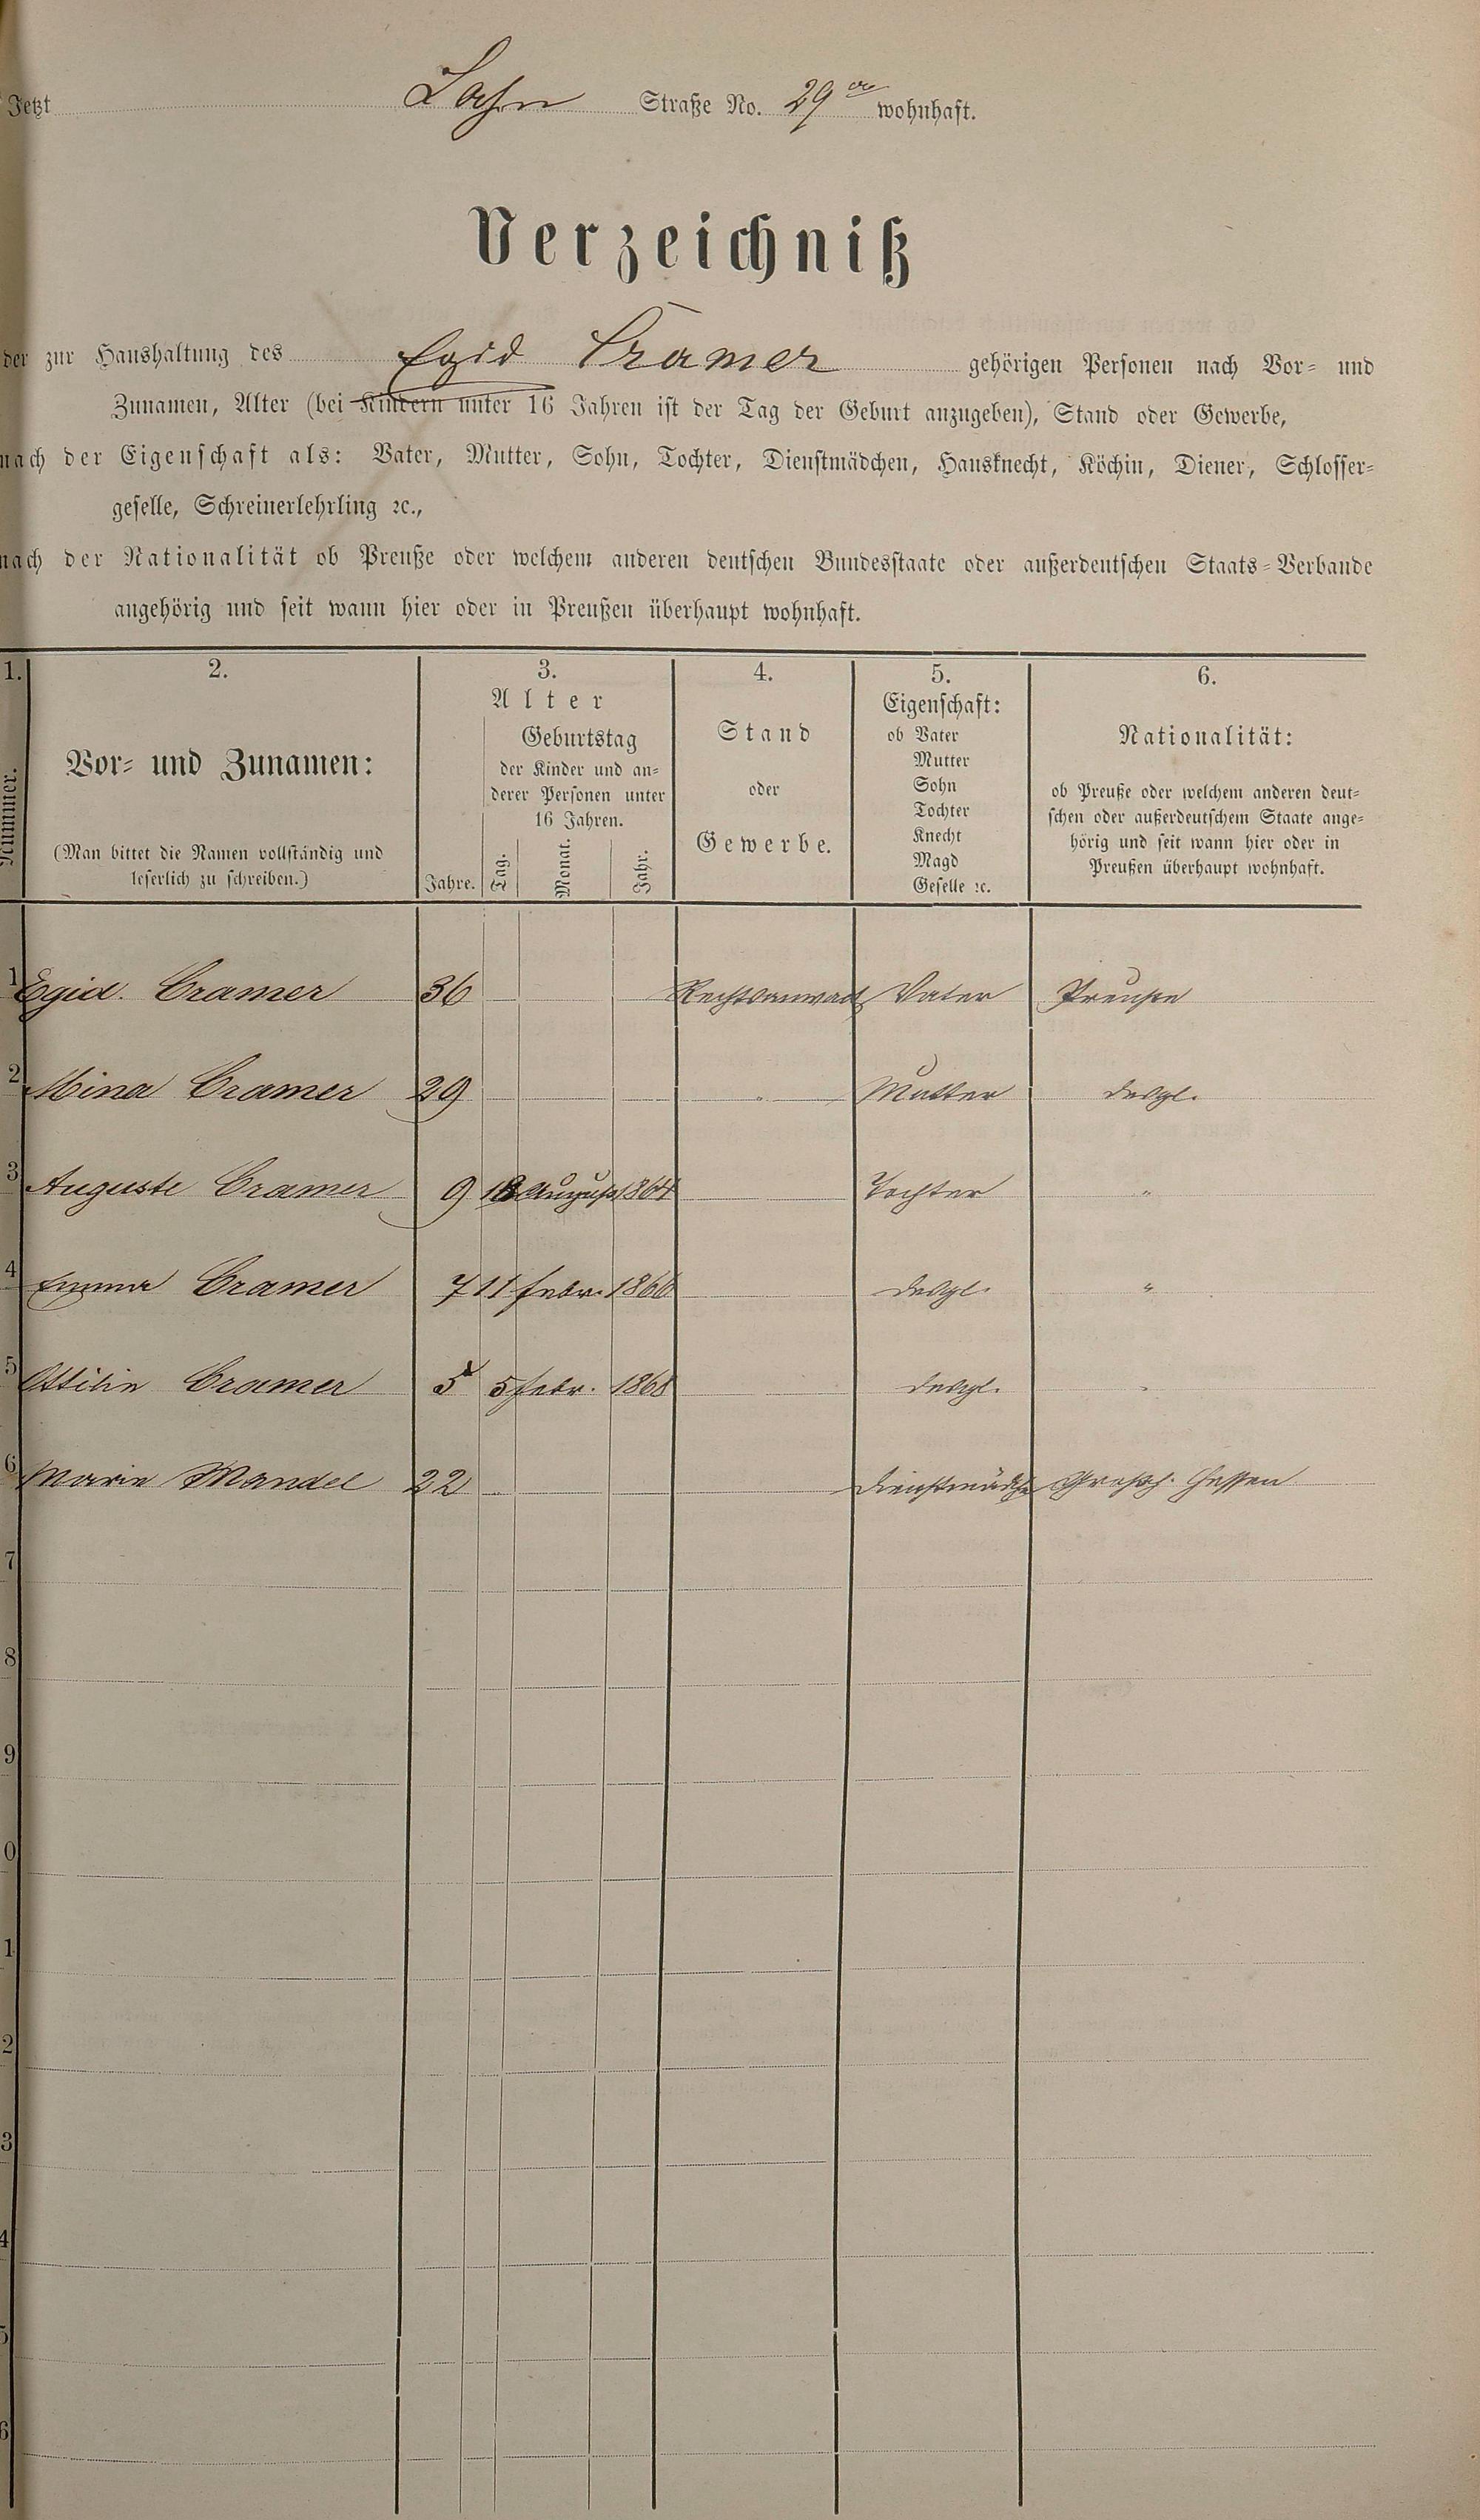 Jetzt Lahn Straße No. 29 a wohnhaft.
Verzeichniß
der zur Haushaltung des Egid Cramer gehörigen Personen nach Vor- und
Zunamen, Alter (bei Kindern unter 16 Jahren ist der Tag der Geburt anzugeben), Stand oder Gewerbe,
nach der Eigenschaft als: Vater, Mutter, Sohn, Tochter, Dienstmädchen, Hausknecht, Köchin, Diener, Schlosser-
geselle, Schreinerlehrling ꝛc.,
nach der Nationalität ob Preuße oder welchem anderen deutschen Bundesstaate oder außerdeutschen Staats-Verbande
angehörig und seit wann hier oder in Preußen überhaupt wohnhaft.
1. 2. 3. 4. 5. 6.
Nummer.
Vor- und Zunamen:
(Man bittet die Namen vollständig und
leserlich zu schreiben.)
Alter
Jahre.
Geburtstag
der Kinder und an-
derer Personen unter
16 Jahren.
Tag. Monat. Jahr.
Stand
oder
Gewerbe.
Eigenschaft:
ob Vater
Mutter
Sohn
Tochter
Knecht
Magd
Geselle ꝛc.
Nationalität:
ob Preuße oder welchem anderen deut-
schen oder außerdeutschem Staate ange-
hörig und seit wann hier oder in
Preußen überhaupt wohnhaft.
1 Egid. Cramer 36 Rechtsanwalt Vater Preuße
2 Mina Cramer 29 " Mutter desgl.
3 Auguste Cramer 9 18 August 1864 Tochter "
4 Emma Cramer 7 11 Febr. 1866 desgl. "
5 Ottilie Cramer 5 5 Febr. 1868 desgl. "
6 Marie Mandel 22 Dienstmädchen Großh. Hessen
7
8
9
0
1
2
3
4
5
6